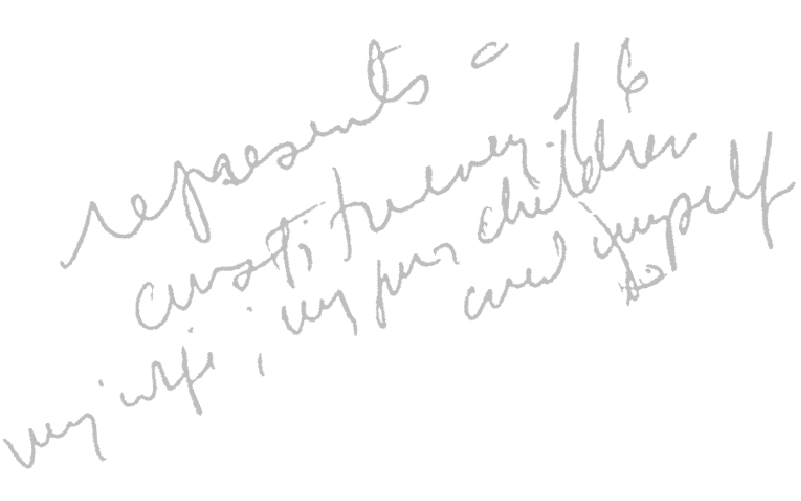 represents a
constituency of 6
my wife, my four children
and myself